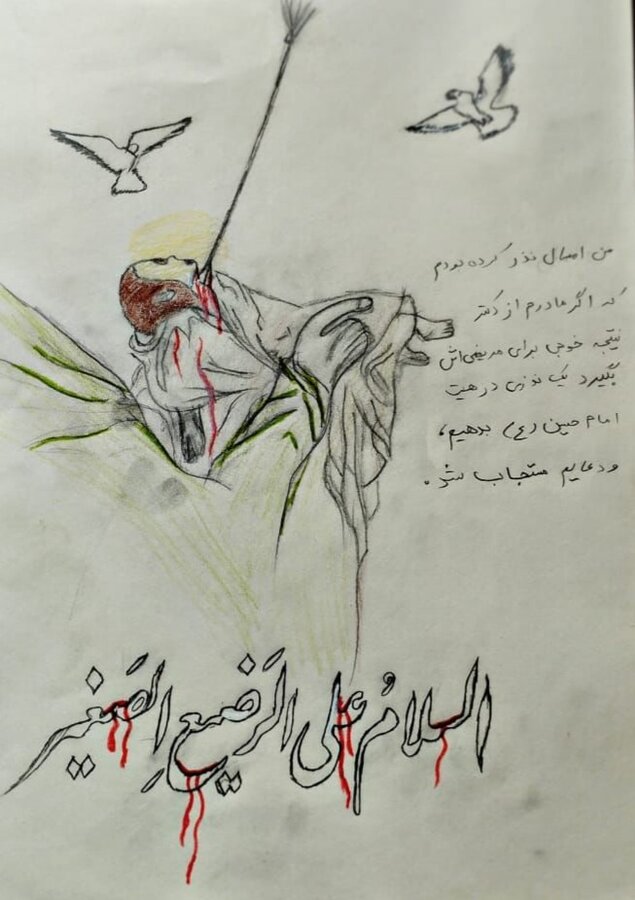 من امسال نذر کرده بودم
که اگر مادرم از دکتر
نتیجه خوبی برای مریضی‌اش
بگیرد یک نونی در هیت
امام حسین (ع) بدهیم،
و دعایم مستجاب شد.
السلامُ علی الرَضیعِ الصَغیر